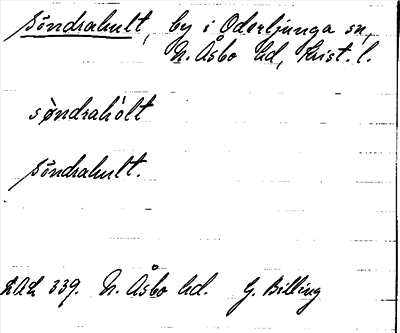 Söndrahult, by i Oderljunga sn,
N. Åsbo hd, Krist. l.
sö̀ndrahólt
Söndrahult.
LAL 339. N. Åsbo hd. G. Billing